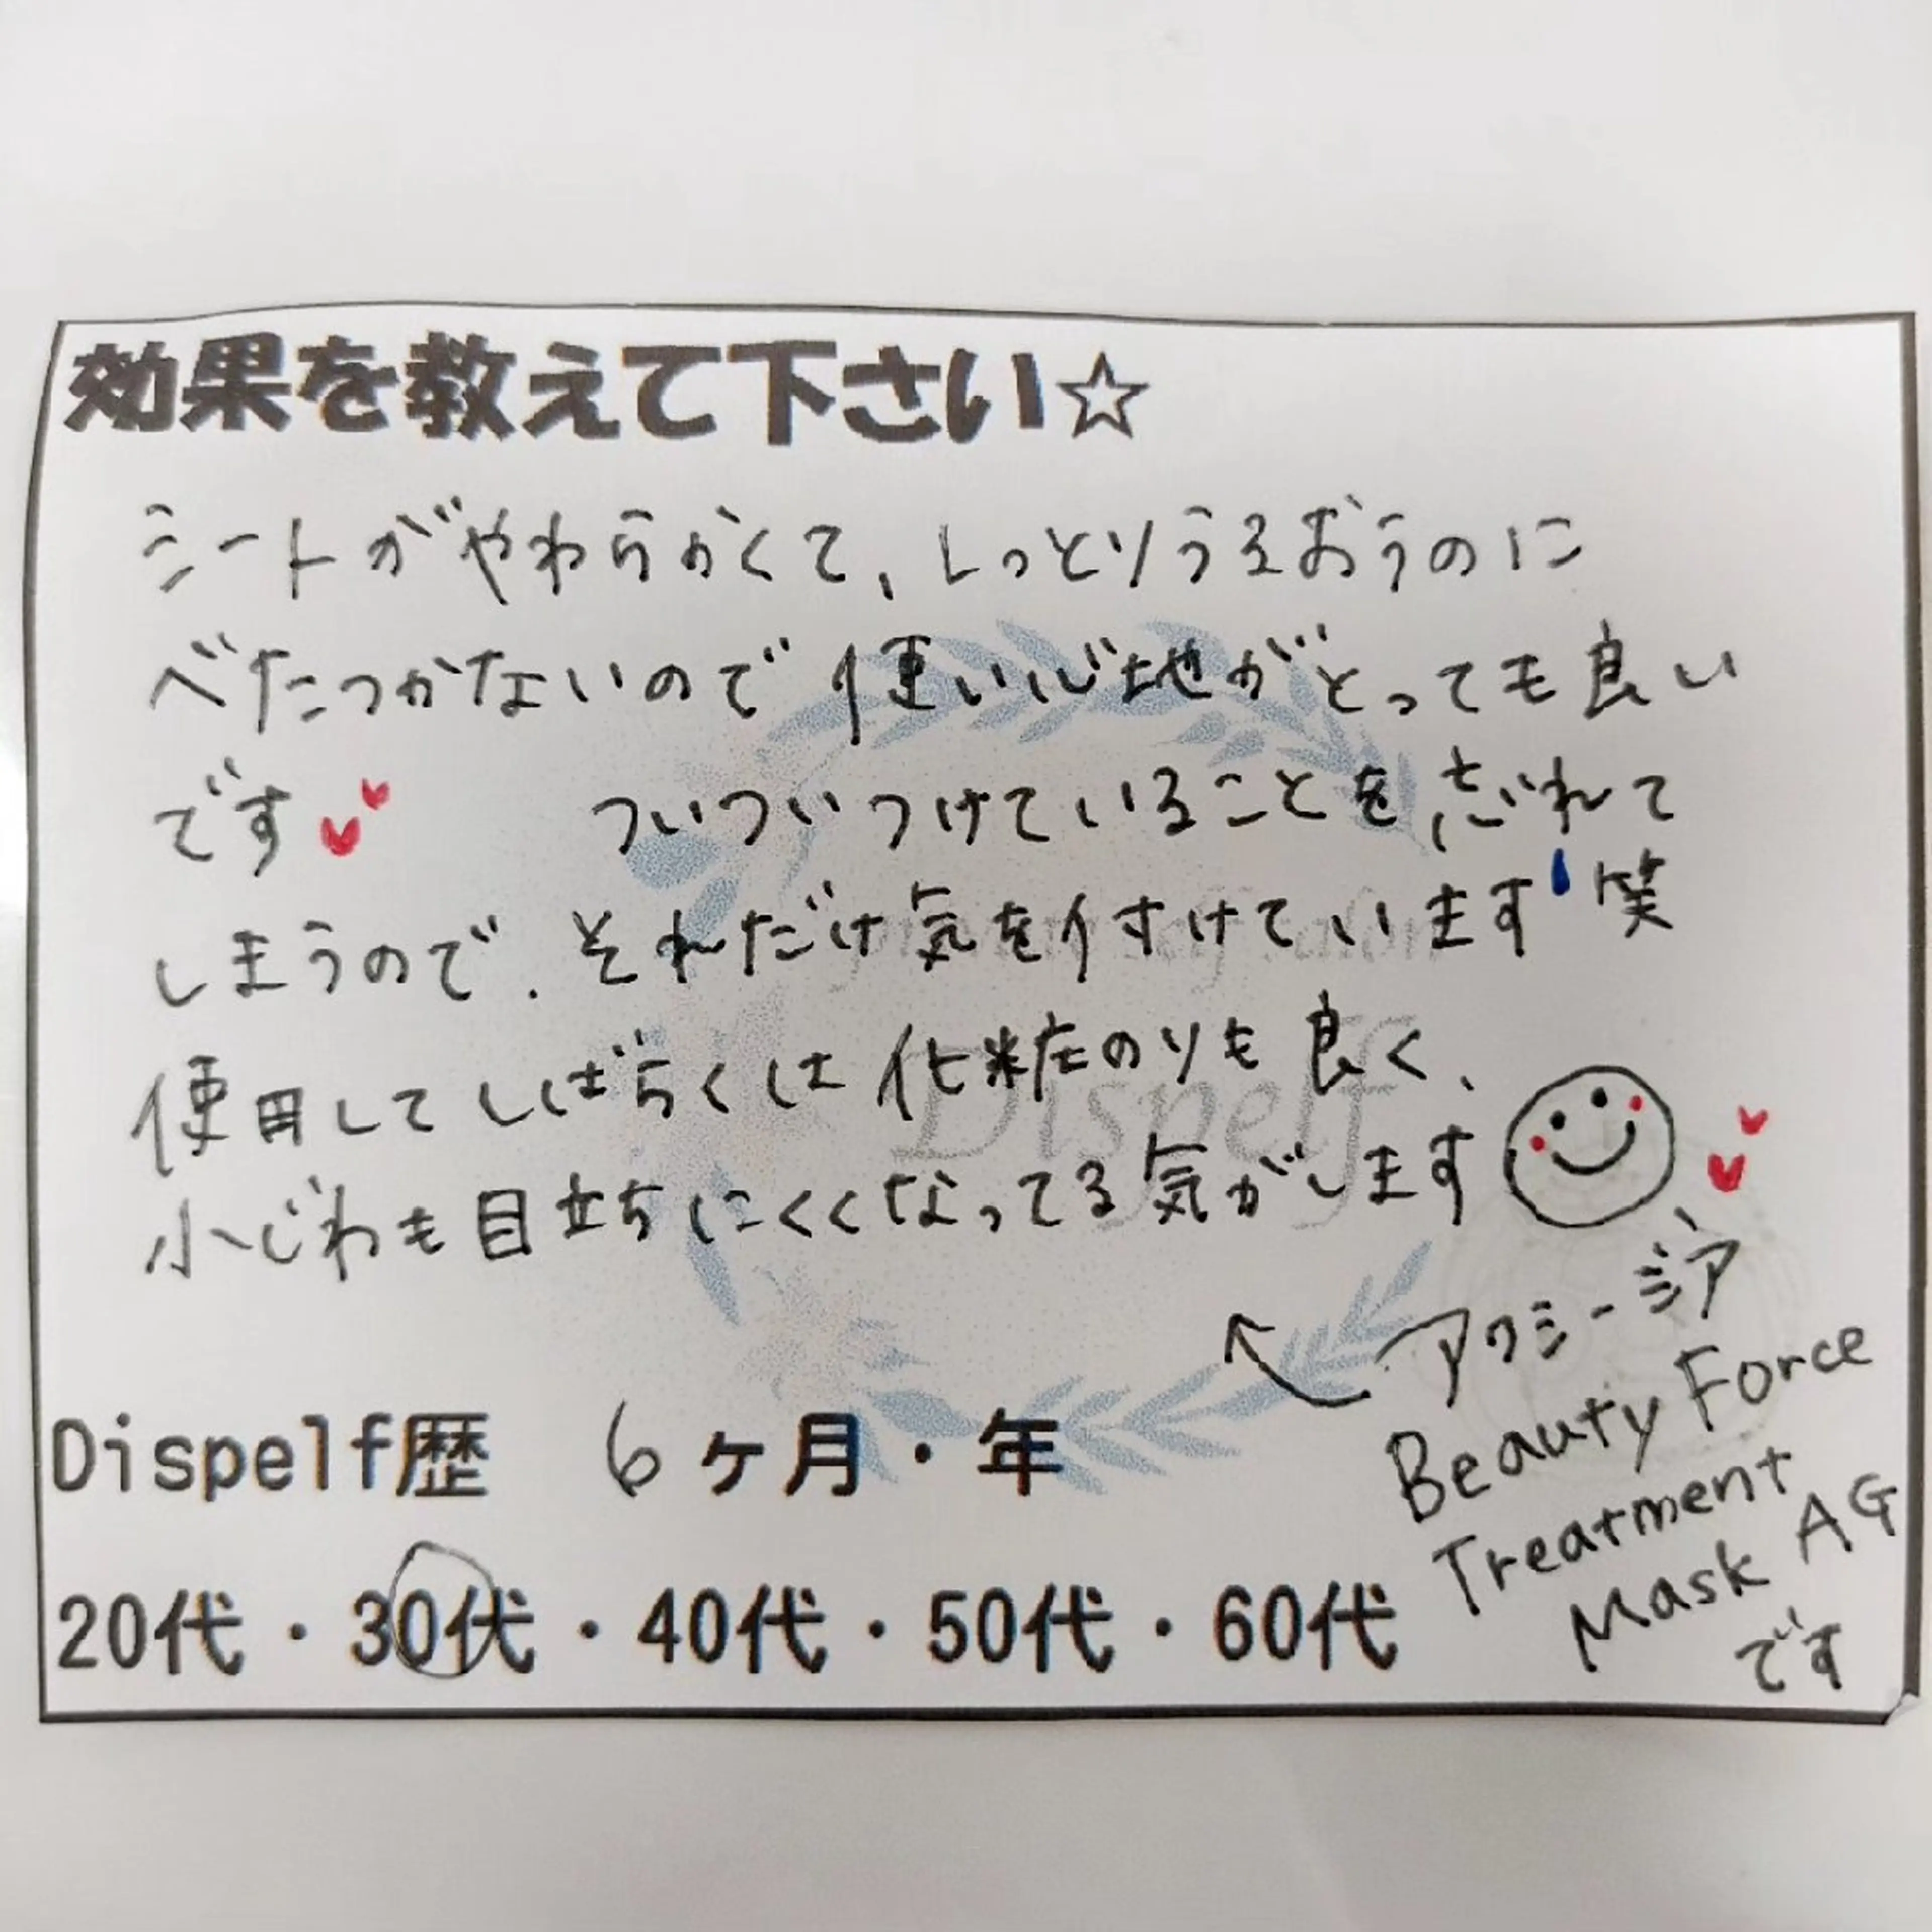 効果を教えて下さい☆
シートがやわらかくて、しっとりうるおうのに
べたつかないので使い心地がとっても良い
です ついついつけていることを忘れて
しまうので、それだけ気を付けています 笑
使用してしばらくは化粧のりも良く、
小じわも目立ちにくくなってる気がします
アクシージア
Beauty Force
Treatment
Mask AG
です
Dispelf
Dispelf歴 6ヶ月・年
20代・30代・40代・50代・60代